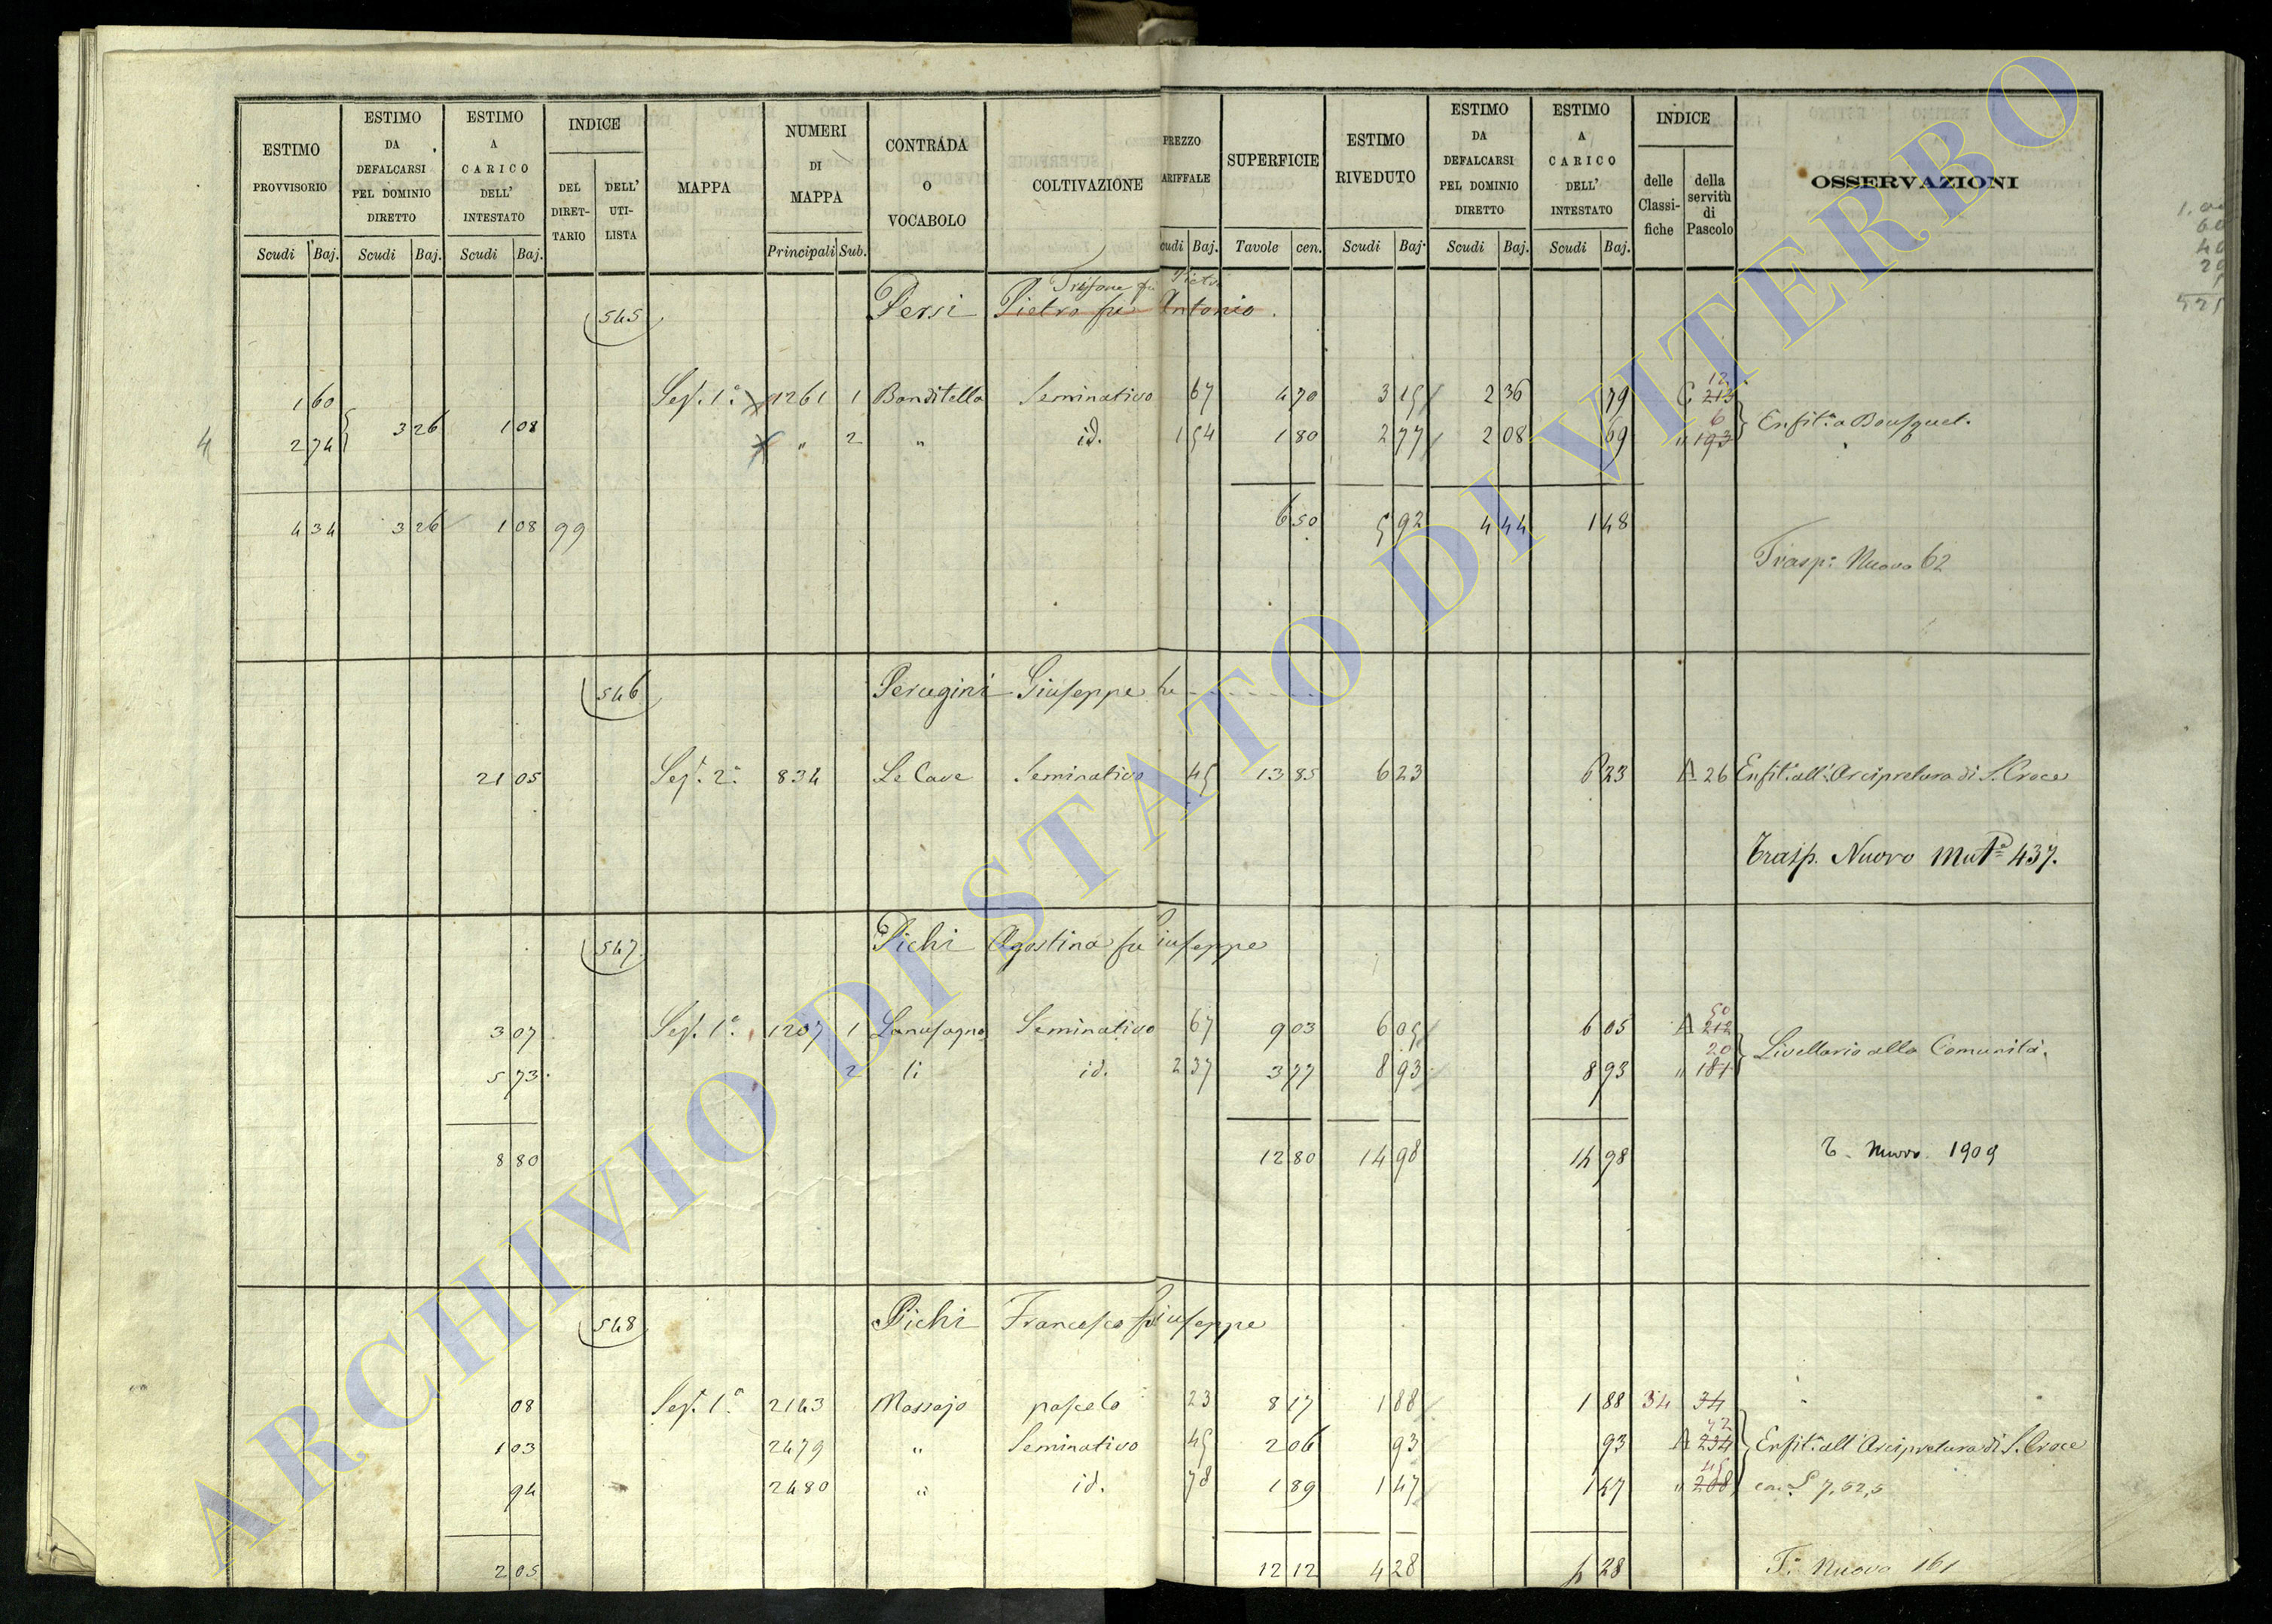 ESTIMO PROVVISORIO | ESTIMO DA DEFALCARSI PEL DOMINIO DIRETTO | ESTIMO A CARICO DELL' INTESTATO | INDICE | MAPPA | NUMERI DI MAPPA | CONTRADA O VOCABOLO | COLTIVAZIONE | PREZZO ARIFFALE | SUPERFICIE | ESTIMO RIVEDUTO | ESTIMO DA DEFALCARSI PEL DOMINIO DIRETTO | ESTIMO A CARICO DELL' INTESTATO | INDICE | OSSERVAZIONI
DEL DIRET-TARIO | DELL' UTI-LISTA | delle Classi-fiche | della servitù di Pascolo
Scudi | Baj. | Scudi | Baj. | Scudi | Baj. | Principali | Sub. | cudi | Baj. | Tavole | cen. | Scudi | Baj. | Scudi | Baj. | Scudi | Baj.
Trifone fu Pietro
545 Persi Pietro fu Antonio
12
1 60 Sez. 1ª 1261 1 Banditella Seminativo 67 4 70 3 15 2 36 79 C 213
3 26 1 08 6 Enfit. a Bousquet.
4 2 74 " 2 " id. 1 54 1 80 2 77 2 08 69 " 193
4 34 3 26 1 08 99 6 50 5 92 4 44 1 48
Trasp: Nuovo 62
546 Perugini Giuseppe fu
21 05 Sez. 2ª 834 Le Cave Seminativo 45 13 85 6 23 6 23 A 26 Enfit. all'Arcipretura di S. Croce
Trasp. Nuovo Mut.ª 437.
547 Pichi Agostino fu Giuseppe
50
3 07 Sez. 1ª 1207 1 Seminativo 67 9 03 6 05 6 05 A 212
20 Livellario alla Comunità.
5 73 2 li id. 2 37 3 77 8 93 8 93 " 181
8 80 12 80 14 98 14 98 T. Nuovo 1909
548 Pichi Francesco fu Giuseppe
08 Sez. 1ª 2143 Massajo pascolo 23 8 17 1 88 1 88 34 34
1 03 2479 " Seminativo 45 2 06 93 93 A 234 Enfit. all'Arcipretura di S. Croce
45
94 2480 " id. 78 1 89 1 47 1 47 " 208
2 05 12 12 4 28 4 28 T. Nuovo 161
1.00
60
40
20
ARCHIVIO DI STATO DI VITERBO